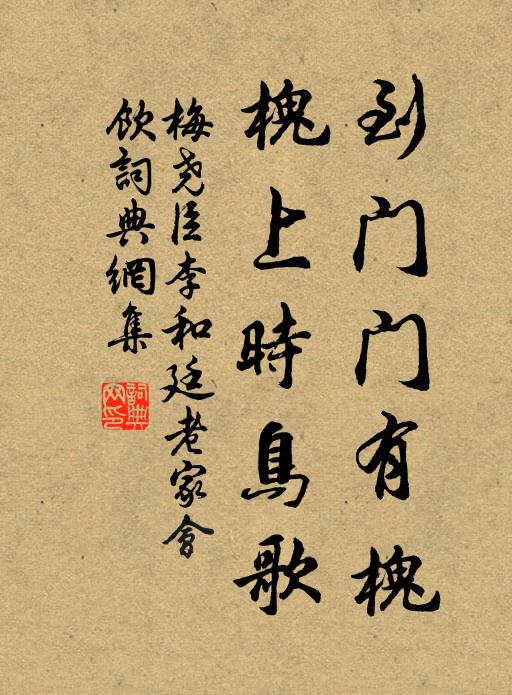 到门门有槐
槐上時鳥歌
梅尧臣李和廷老家會
飲詞典網集
詞典网印